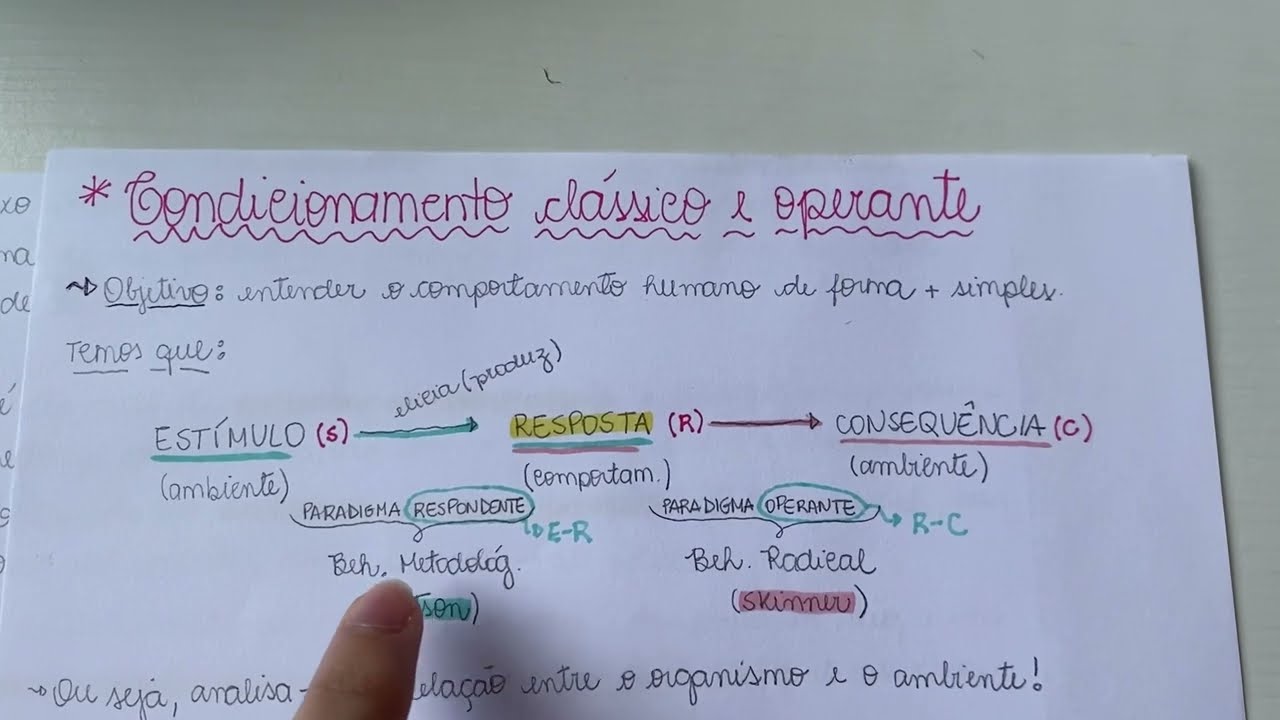 xo
ma
de
é
* Condicionamento clássico e operante
~D Objetivo: entender o comportamento humano de forma + simples.
Temos que:
elicia (produz)
ESTÍMULO (S) → RESPOSTA (R) → CONSEQUÊNCIA (C)
(ambiente) (comportam.) (ambiente)
PARADIGMA RESPONDENTE → E-R PARADIGMA OPERANTE → R-C
Beh. Metodológ. Beh. Radical
tson) (Skinner)
~> Ou sejá, analisa- elação entre o organismo e o ambiente!